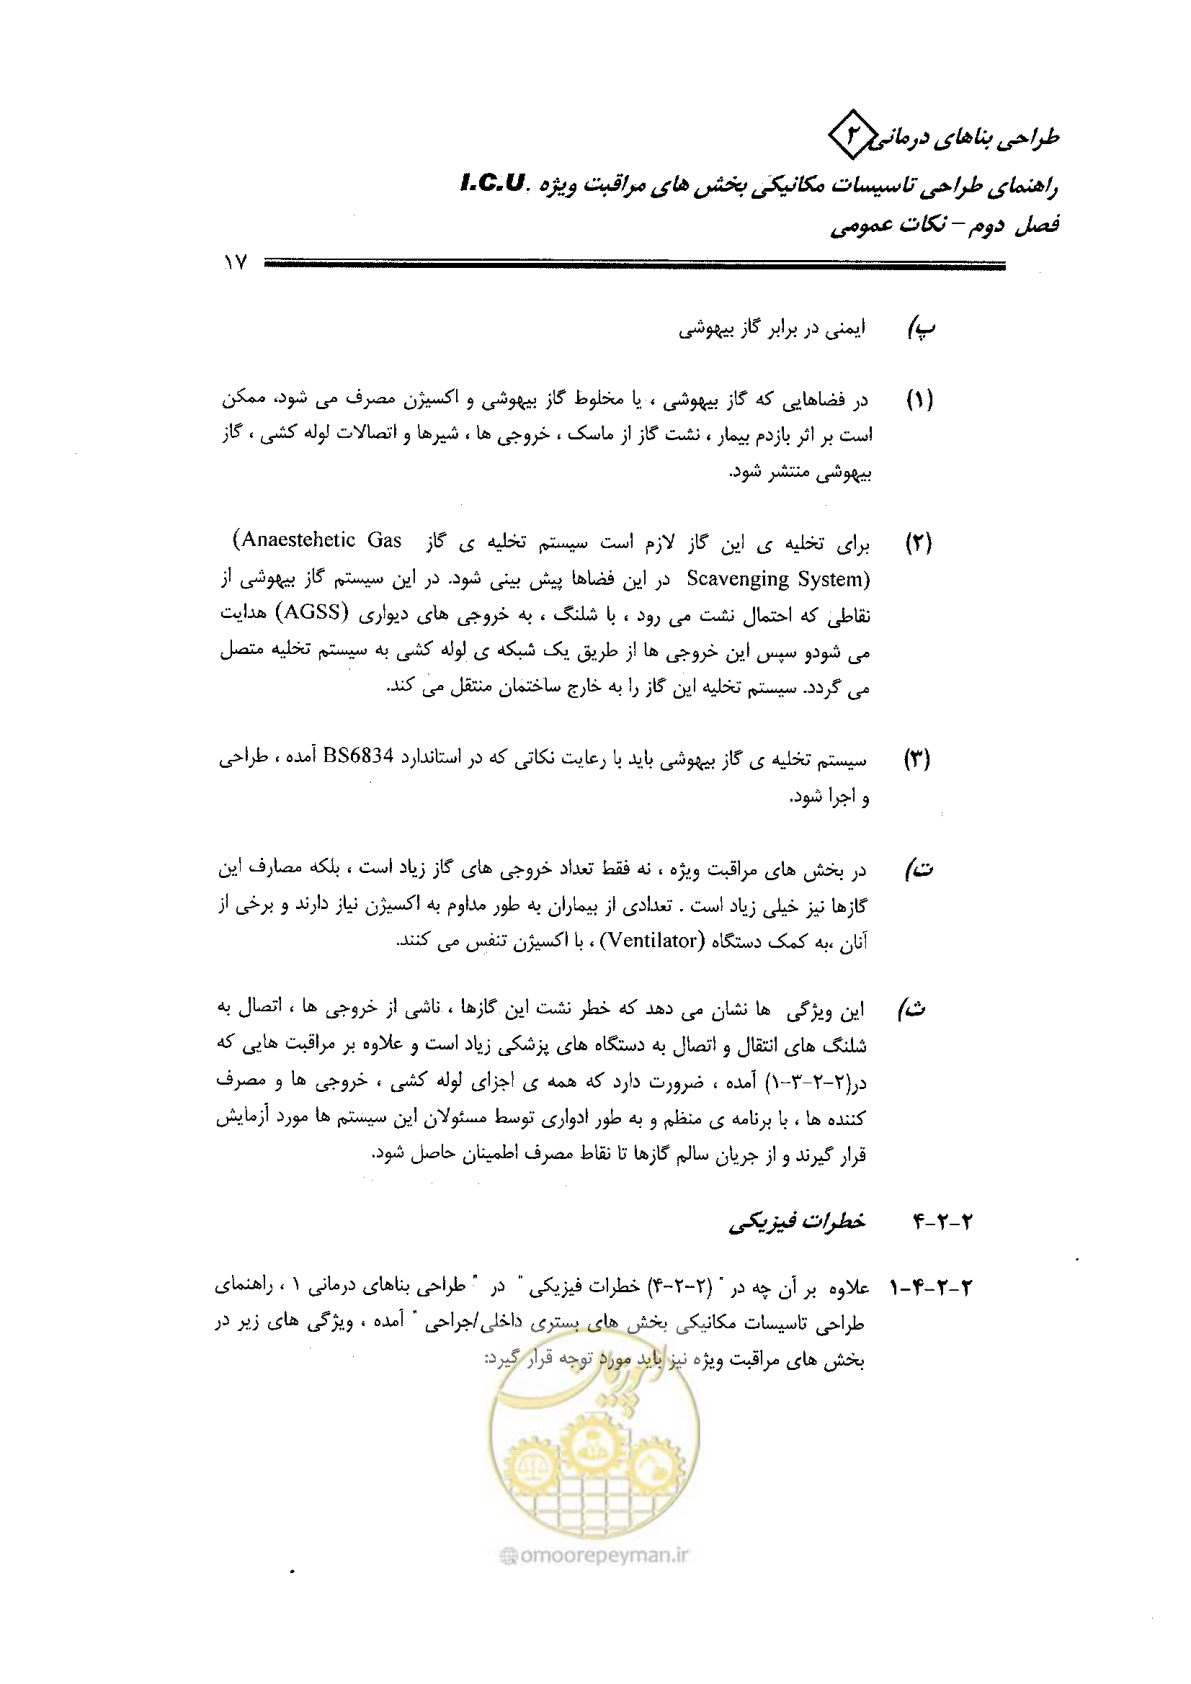 طراحی بناهای درمانی ۲
راهنمای طراحی تاسیسات مکانیکی بخش های مراقبت ویژه I.C.U.
فصل دوم – نکات عمومی
۱۷
پ) ایمنی در برابر گاز بیهوشی
(۱) در فضاهایی که گاز بیهوشی ، یا مخلوط گاز بیهوشی و اکسیژن مصرف می شود، ممکن
است بر اثر بازدم بیمار ، نشت گاز از ماسک ، خروجی ها ، شیرها و اتصالات لوله کشی ، گاز
بیهوشی منتشر شود.
(۲) برای تخلیه ی این گاز لازم است سیستم تخلیه ی گاز (Anaestehetic Gas
Scavenging System) در این فضاها پیش بینی شود. در این سیستم گاز بیهوشی از
نقاطی که احتمال نشت می رود ، با شلنگ ، به خروجی های دیواری (AGSS) هدایت
می شودو سپس این خروجی ها از طریق یک شبکه ی لوله کشی به سیستم تخلیه متصل
می گردد. سیستم تخلیه این گاز را به خارج ساختمان منتقل می کند.
(۳) سیستم تخلیه ی گاز بیهوشی باید با رعایت نکاتی که در استاندارد BS6834 آمده ، طراحی
و اجرا شود.
ت) در بخش های مراقبت ویژه ، نه فقط تعداد خروجی های گاز زیاد است ، بلکه مصارف این
گازها نیز خیلی زیاد است . تعدادی از بیماران به طور مداوم به اکسیژن نیاز دارند و برخی از
آنان ،به کمک دستگاه (Ventilator) ، با اکسیژن تنفس می کنند.
ث) این ویژگی ها نشان می دهد که خطر نشت این گازها ، ناشی از خروجی ها ، اتصال به
شلنگ های انتقال و اتصال به دستگاه های پزشکی زیاد است و علاوه بر مراقبت هایی که
در(۲-۲-۳-۱) آمده ، ضرورت دارد که همه ی اجزای لوله کشی ، خروجی ها و مصرف
کننده ها ، با برنامه ی منظم و به طور ادواری توسط مسئولان این سیستم ها مورد آزمایش
قرار گیرند و از جریان سالم گازها تا نقاط مصرف اطمینان حاصل شود.
۲-۲-۴ خطرات فیزیکی
۲-۲-۴-۱ علاوه بر آن چه در " (۲-۲-۴) خطرات فیزیکی " در " طراحی بناهای درمانی ۱ ، راهنمای
طراحی تاسیسات مکانیکی بخش های بستری داخلی/جراحی " آمده ، ویژگی های زیر در
بخش های مراقبت ویژه نیز باید مورد توجه قرار گیرد:
امور پیمان
@omoorepeyman.ir